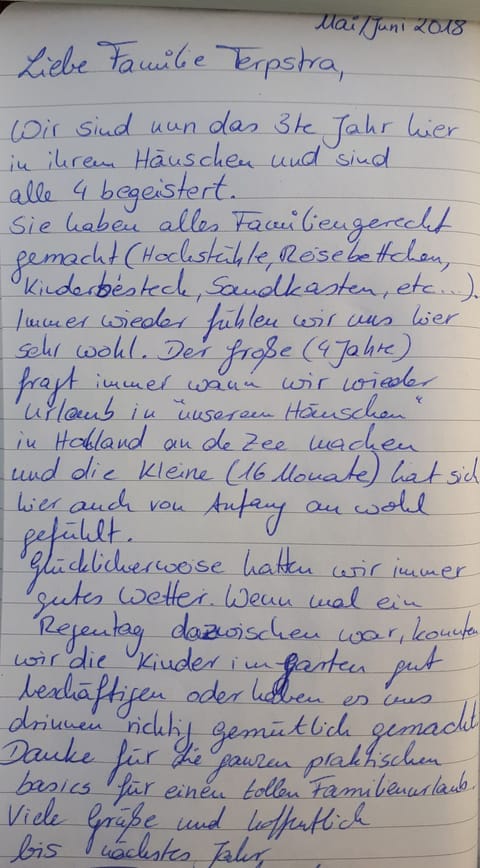 Mai/Juni 2018
Liebe Familie Terpstra,
Wir sind nun das 3te Jahr hier
in ihrem Häuschen und sind
alle 4 begeistert.
Sie haben alles Familiengerecht
gemacht (Hochstühle, Reisebettchen,
Kinderbesteck, Sandkasten, etc...).
Immer wieder fühlen wir uns hier
sehr wohl. Der große (4 Jahre)
fragt immer wann wir wieder
Urlaub in "unserem Häuschen"
in Holland an de Zee machen
und die Kleine (16 Monate) hat sich
hier auch von Anfang an wohl
gefühlt.
Glücklicherweise hatten wir immer
gutes Wetter. Wenn mal ein
Regentag dazwischen war, konnten
wir die Kinder im Garten gut
beschäftigen oder haben es uns
drinnen richtig gemütlich gemacht
Danke für die ganzen praktischen
basics für einen tollen Familienurlaub.
Viele Grüße und hoffentlich
bis nächstes Jahr,